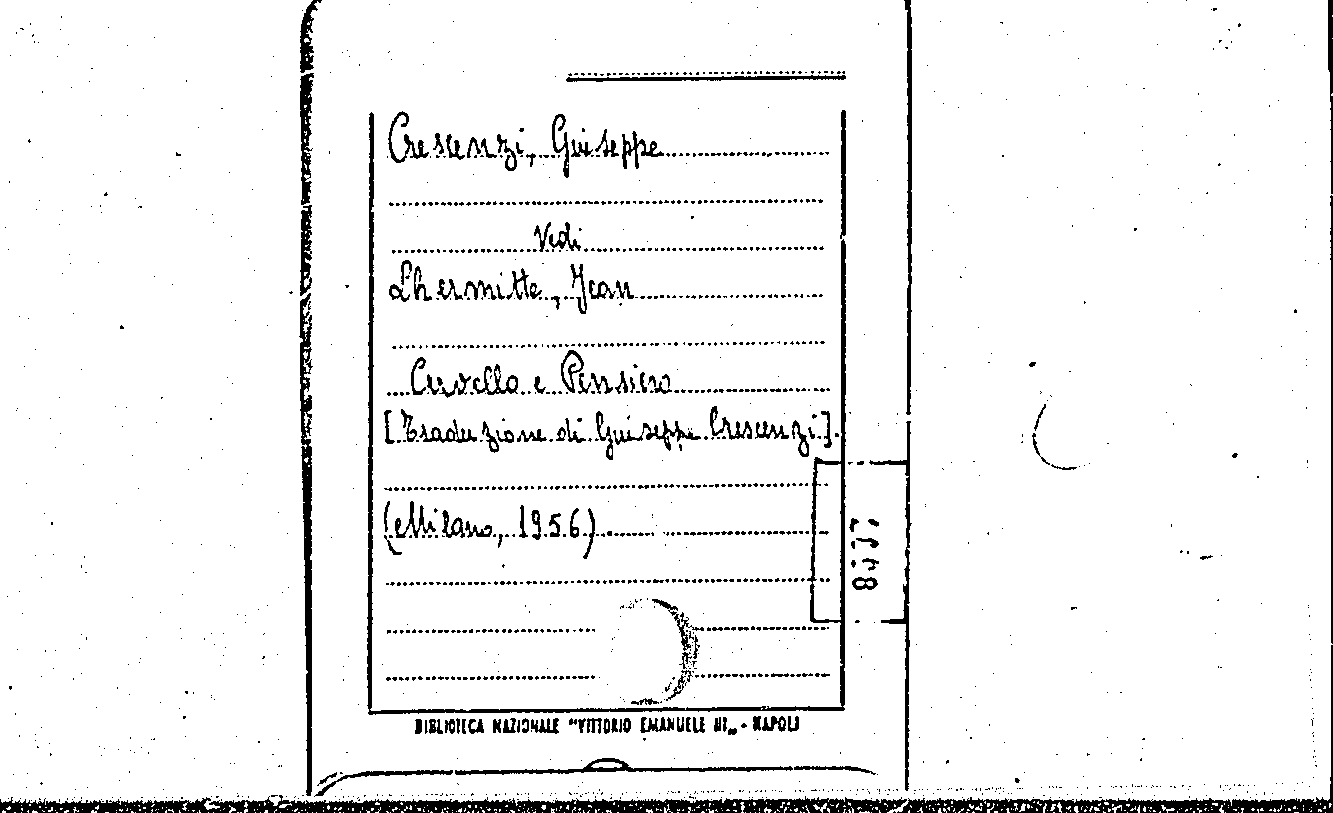 Crescenzi, Giuseppe
Vedi
Lhermitte, Jean
Cervello e Pensiero
[Traduzione di Giuseppe Crescenzi].
(Milano, 1956).
BIBLIOTECA NAZIONALE "VITTORIO EMANUELE III„ - NAPOLI